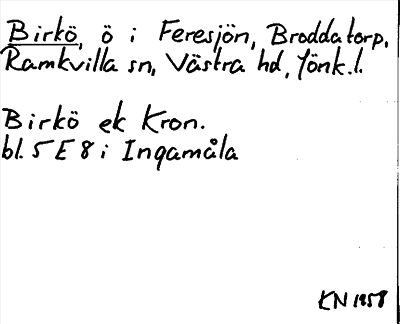 Birkö, ö i Feresjön, Broddatorp,
Ramkvilla sn, Västra hd, Jönk.l.
Birkö ek Kron.
bl. 5 E 8 i Ingamåla
KN 1958